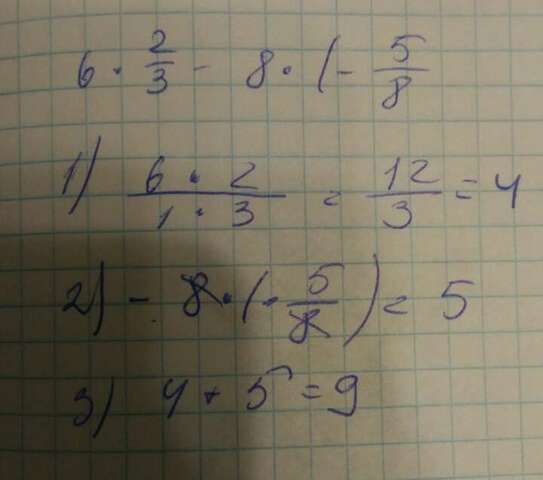 6 · 2/3 - 8 · (- 5/8
1) 6 · 2 / 1 · 3 = 12/3 = 4
2) - 8 · (- 5/8) = 5
3) 4 + 5 = 9